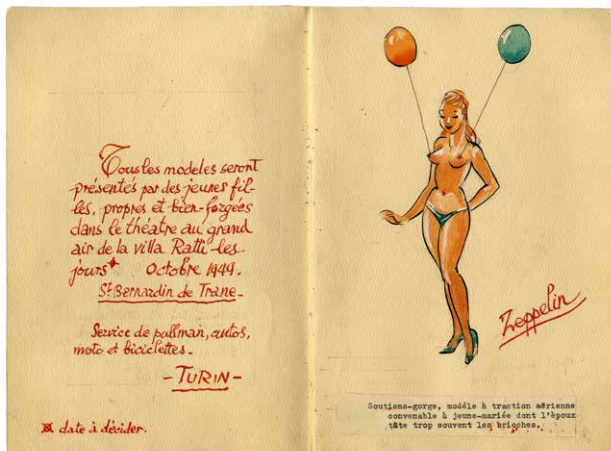 Tous les modeles seront
présentés par des jeunes fil-
les, propres et bien-forgées
dans le théatre au grand
air de la villa Ratti-les
jours* Octobre 1949.
St Bernardin de Trane-
Service de pullman, autos,
moto et biciclettes.
-TURIN-
* date à décider.
Zeppelin
Soutiens-gorge, modèle à traction aérienne
convenable à jeune-mariée dont l'époux
tâte trop souvent les brioches.